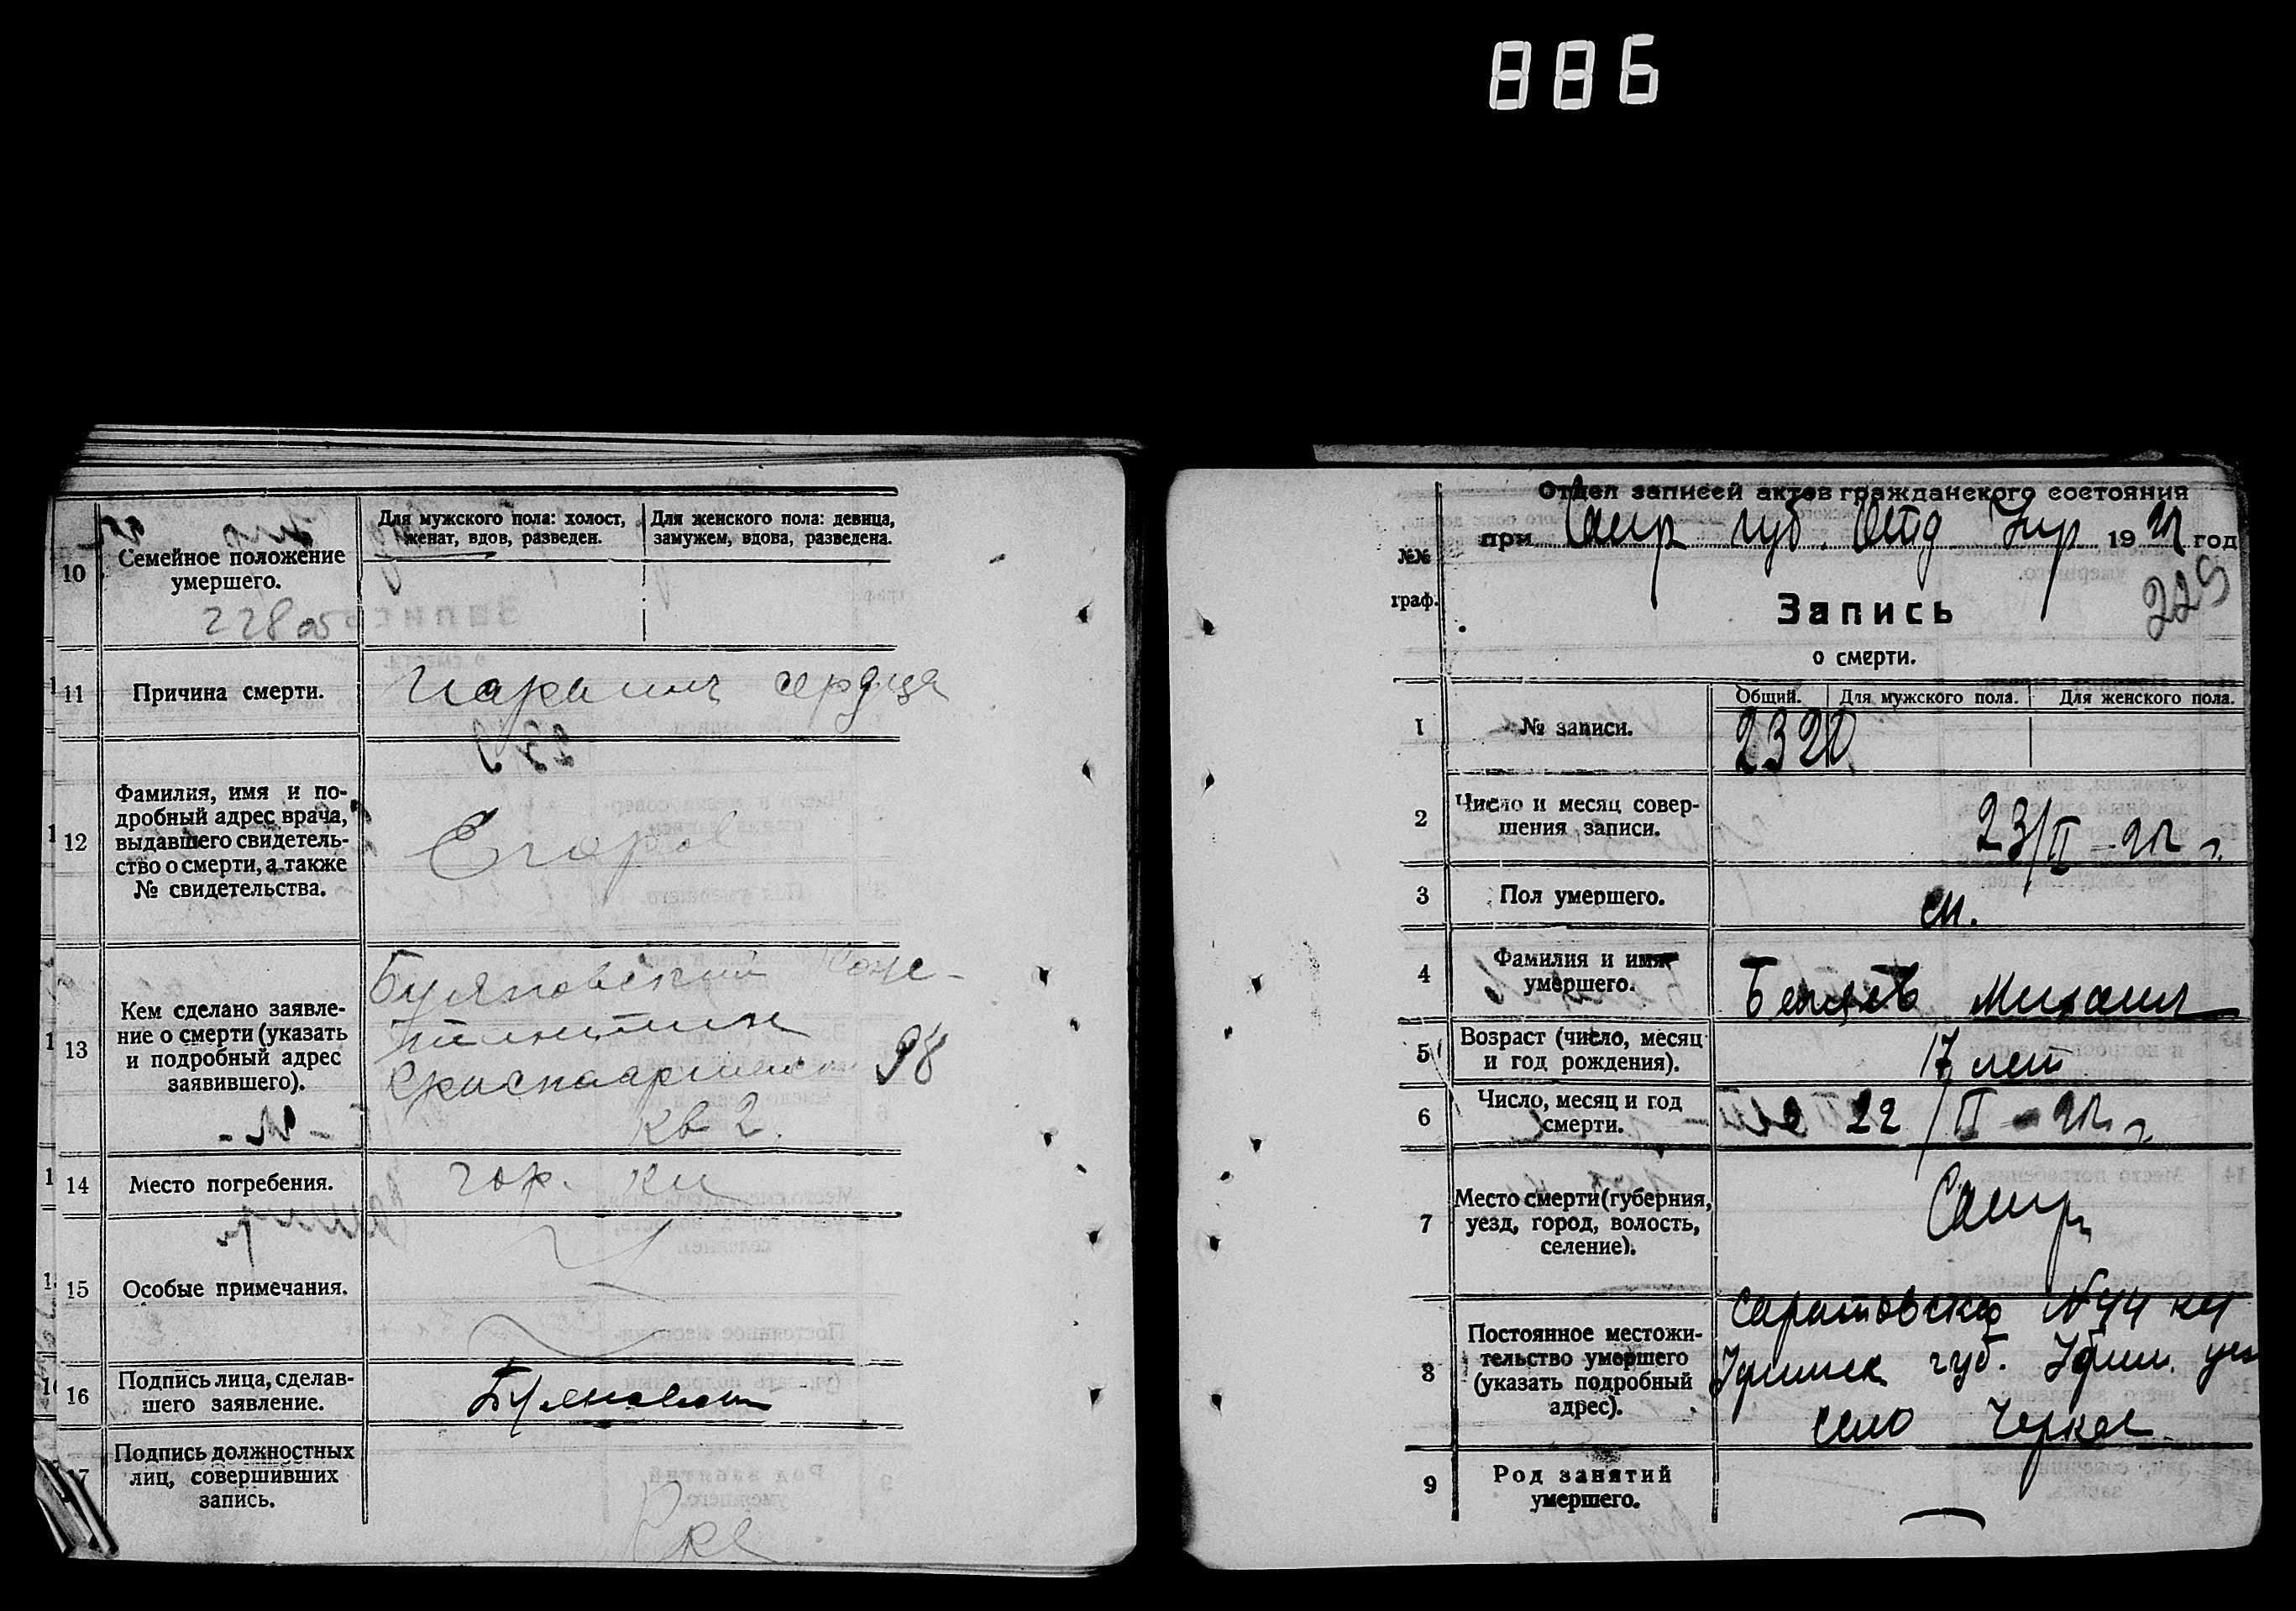 886
10
Семейное положение
умершего.
Для мужского пола: холост,
женат, вдов, разведен.
Для женского пола: девица,
замужем, вдова, разведена.
228 об
11
Причина смерти.
сердца
12
Фамилия, имя и по-
дробный адрес врача,
выдавшего свидетель-
ство о смерти, а также
№ свидетельства.
Егоров
13
Кем сделано заявле-
ние о смерти (указать
и подробный адрес
заявившего).
Буяновский Конс-
тантин
Красноармейск 98
кв 2.
14
Место погребения.
гор.
15
Особые примечания.
16
Подпись лица, сделав-
шего заявление.
17
Подпись должностных
лиц, совершивших
запись.
№№
граф.
Отдел записей актов гражданского состояния
при губ. Отд Упр 1922 год
229
Запись
о смерти.
Общий.
Для мужского пола.
Для женского пола.
1
№ записи.
2320
2
Число и месяц совер-
шения записи.
23/II - 22 г.
3
Пол умершего.
м.
4
Фамилия и имя
умершего.
Беляев Михаил
5
Возраст (число, месяц
и год рождения).
17 лет
6
Число, месяц и год
смерти.
22/II - 22 г
7
Место смерти (губерния,
уезд, город, волость,
селение).
Самр
8
Постоянное местожи-
тельство умершего
(указать подробный
адрес).
Саратовская №44 кв
Уфимск губ. Уфим. уез
село
9
Род занятий
умершего.